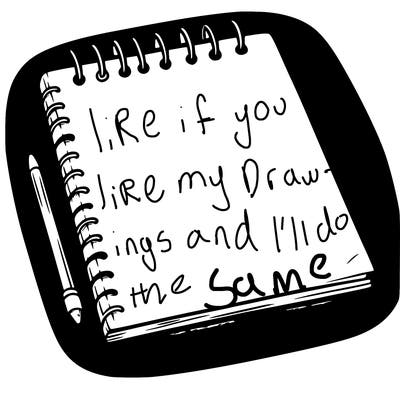 liRe if you
liRe my Draw-
ings and I'll do
the Same